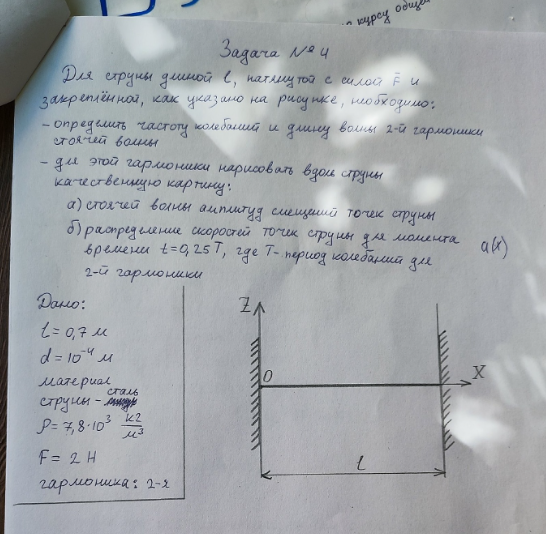 курсу общ
Задача №4
Для струны длиной l, натянутой с силой F⃗ и
закреплённой, как указано на рисунке, необходимо:
- определить частоту колебаний и длину волны 2-й гармоники
стоячей волны
- для этой гармоники нарисовать вдоль струны
качественную картину:
а) стоячей волны амплитуд смещений точек струны
б) распределение скоростей точек струны для момента
времени t=0,25T, где T- период колебаний для a(x)
2-й гармоники
Дано:
l = 0,7 м
d = 10⁻⁴ м
материал
струны - сталь
ρ = 7,8·10³ кг/м³
F = 2 Н
гармоника: 2-я
Z
O
X
l